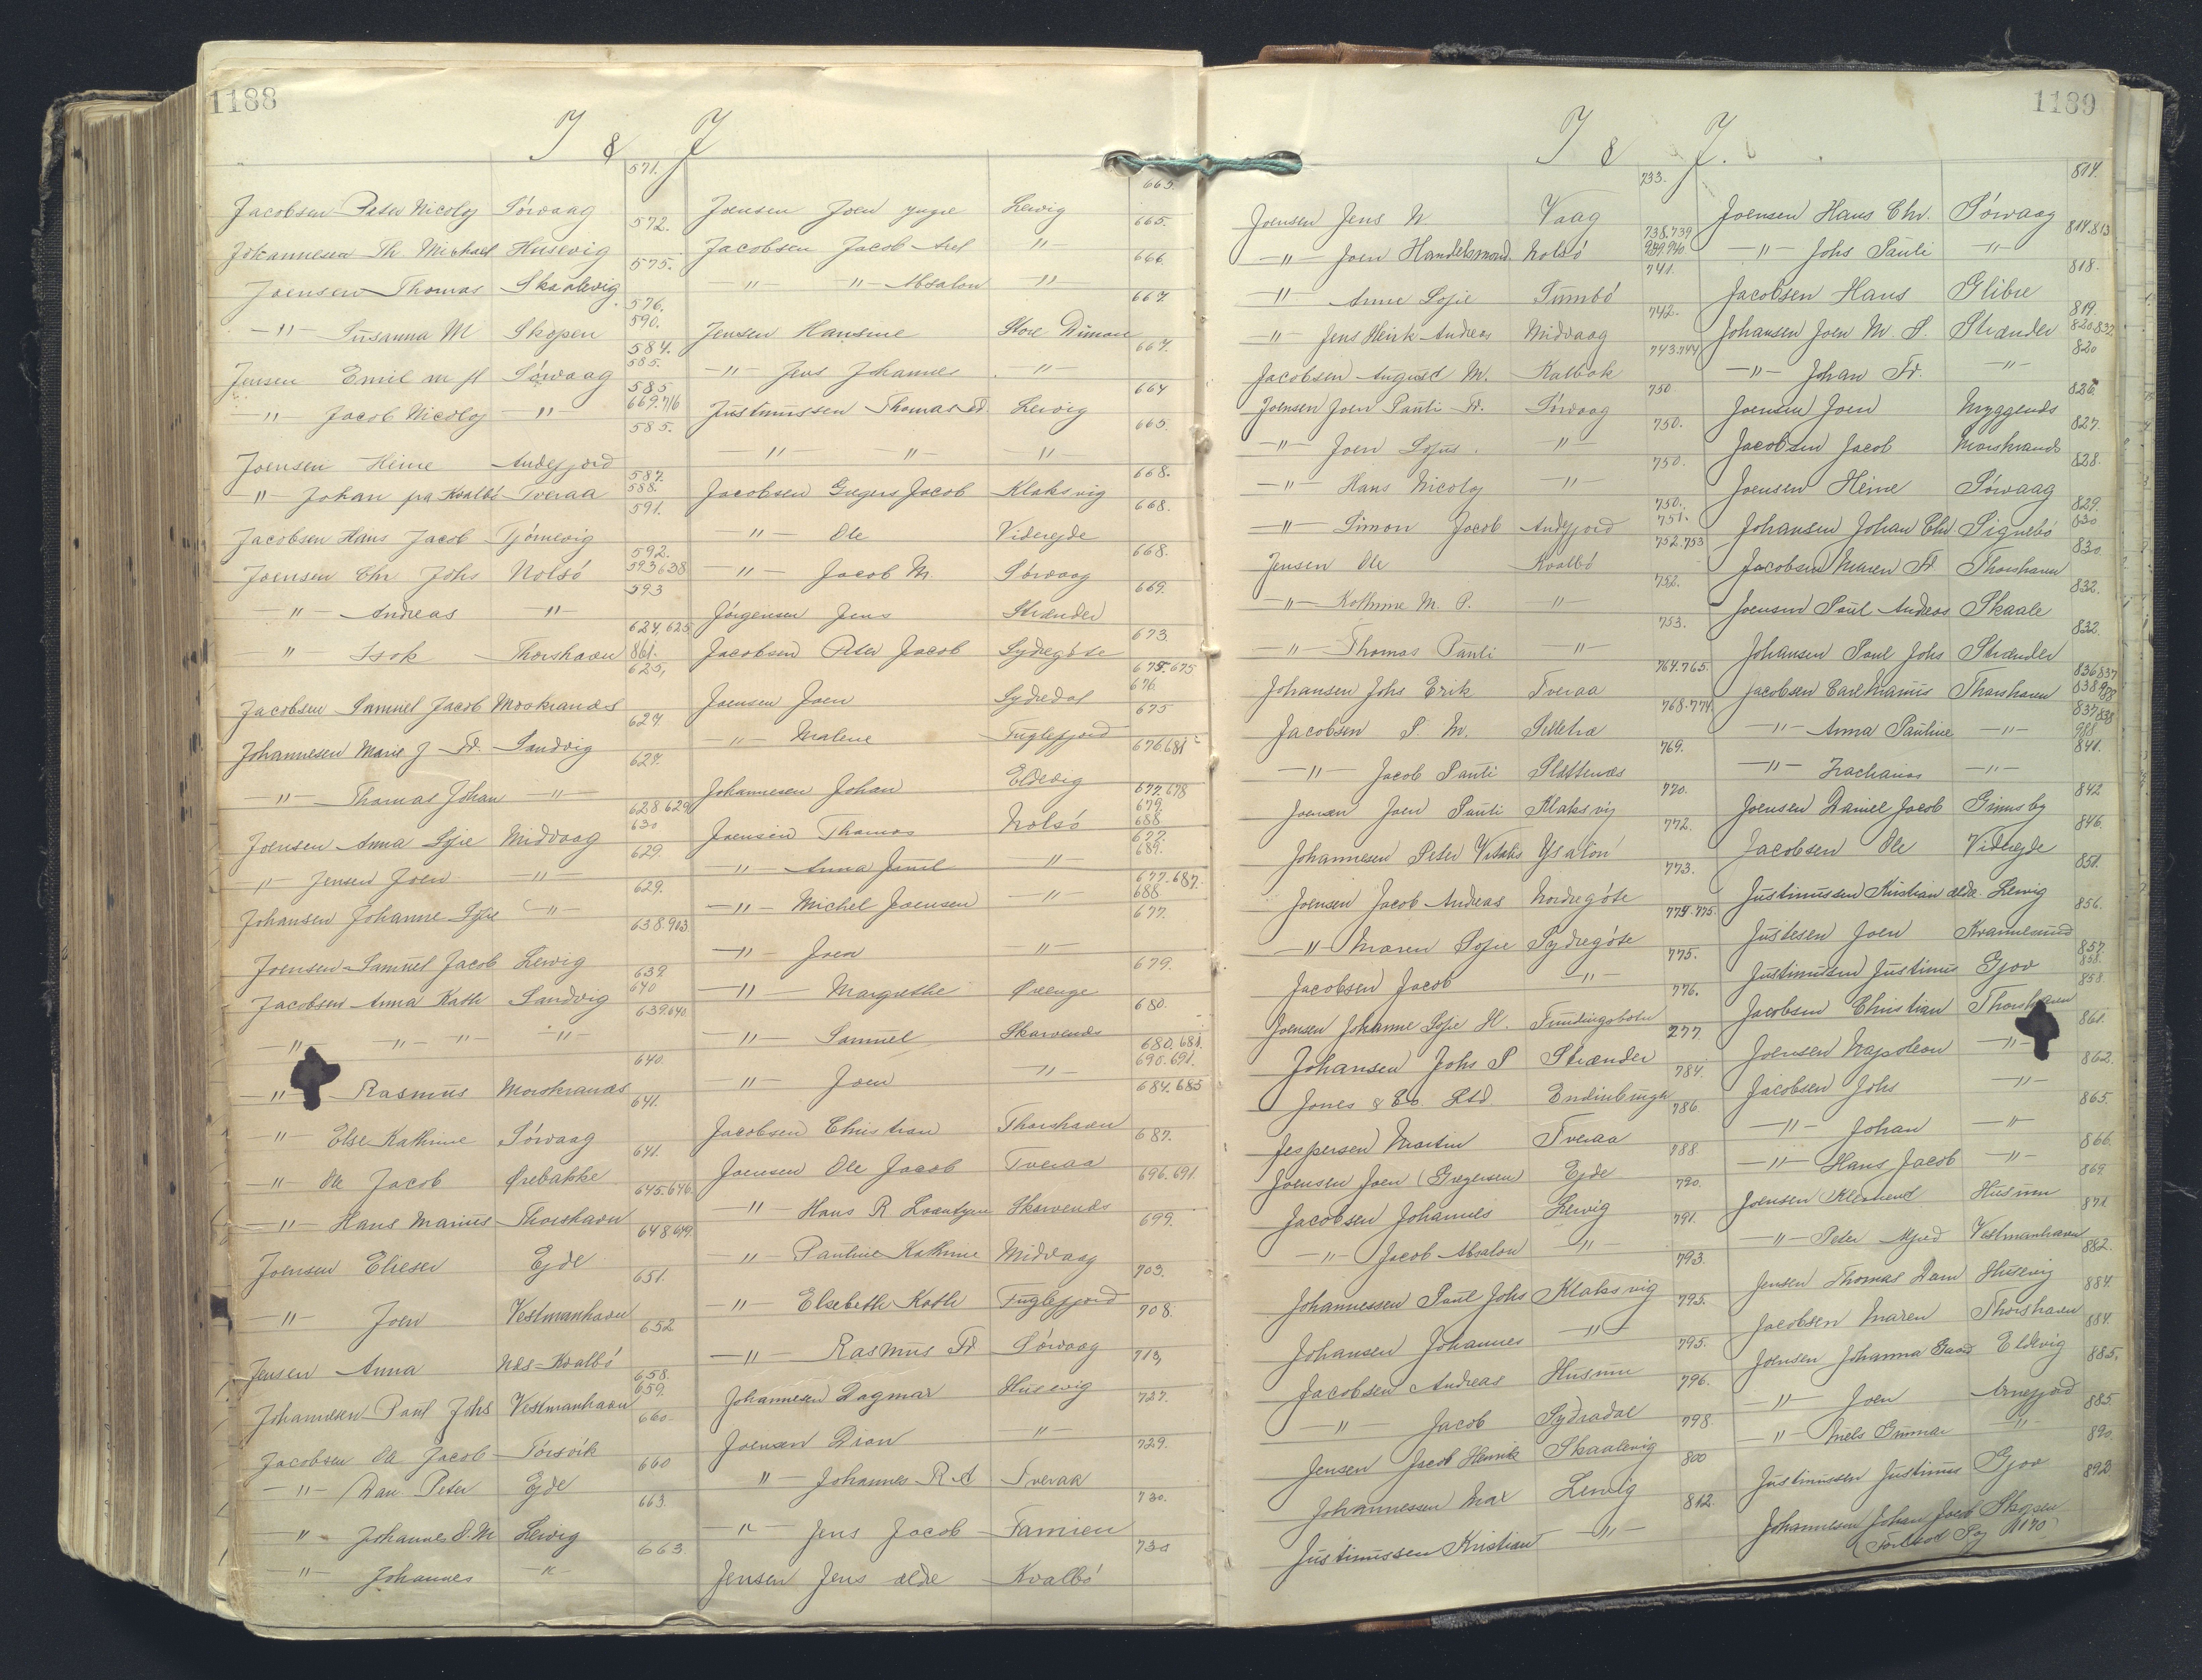 1188
I & J
571.
Jacobsen Peter Nicoloj Sórvaag 572.
Johannesen Th. Michael Husevig 575.
Joensen Thomas Skaalevig 576.
-"- Susanna M Skopen 590. 584.
Jensen Emil m fl Sórvaag 585. 585
-"- Jacob Nicoloj -"- 669.716 585.
Joensen Heine Andefjord 587.
" Johan fra Kvalbó Tveraa 588. 591.
Jacobsen Hans Jacob Tjórnevig 592.
Joensen Chr. Johs Nolsó 593 638 593
-"- Andreas -"- 624, 625
" Isak Thorshavn 861. 625,
Jacobsen Samuel Jacob Morskranes 627
Johannesen Marie J. Fr. Sandvig 627.
-"- Thomas Johan -"- 628 629
Joensen Anna Sofie Midvaag 630 629.
-"- Jensen Joen -"- 629.
Johansen Johanne Sofie -"- 638.903
Joensen Samuel Jacob Lervig 639.
Jacobsen Anna Kath Sandvig 640 639.640
-"- -"- -"- -"- 640.
-"- Rasmus Morskranes 641.
-"- Else Kathrine Sórvaag 641.
-"- Ole Jacob Ørebakke 645.646
-"- Hans Marius Thorshavn 648.649.
Joensen Elieser Ejde 651.
-"- Joen Vestmanhavn 652
Jensen Anna Nes-Kvalbó 658.
Johannesen Paul Johs Vestmanhavn 659. 660.
Jacobsen Ole Jacob Tórsvik 660
-"- Dan Peter Ejde 663.
" Johannes D. M Lervig 663
-"- Johannes -"-
665.
Joensen Joen yngre Lervig 665.
Jacobsen Jacob Axel -"- 666.
-"- -"- Absalon -"- 667.
Jensen Hansine Store Dimon 667.
-"- Jens Johannes -"- 664
Justinussen Thomas Fr Lervig 665.
-"- -"- -"- 668.
Jacobsen Gregers Jacob Klaksvig 668.
-"- Ole Viderejde 668.
-"- Jacob M. Sórvaag 669.
Jórgensen Jens Strænder 673
Jacobsen Peter Jacob Sydregóte 675.675
Joensen Joen Sydredal 676 675
-"- Malene Fuglefjord 676 681
Johannesen Johan Eldevig 677.678
Joensen Thomas Nolsó 679. 688 677.
-"- Anna Jomil -"- 689. 677.687.
-"- Michel Joensen -"- 688 677.
-"- Joen -"- 679.
-"- Margrethe Ørenge 680.
-"- Samuel Skarvenes 680.681.
-"- Joen -"- 690.691. 684.685
Jacobsen Christian Thorshavn 687.
Joensen Ole Jacob Tveraa 696.691
-"- Hans R Skarvenes 699.
-"- Pauline Kathrine Midvaag 703.
-"- Elsebeth Kath Fuglefjord 708.
-"- Rasmus Fr Sórvaag 713,
Johannesen Dagmar Husevig 727.
Joensen Dion -"- 729.
"- Johannes R. A Tveraa 730.
-"- Jens Jacob Famien 730
Jensen Jens ældre Kvalbó
1189
I & J.
733.
Joensen Jens N Vaag 738.739
-"- Joen Handelsmand. Nolsó 939.940 741.
-"- Anna Sofie Sumbó 742.
-"- Jens Heink Andreas Midvaag 743.744
Jacobsen August M. Kalbak 750
Joensen Joen Pauli Fr. Sórvaag 750.
-"- Joen Sofus. -"- 750.
-"- Hans Nicoloj -"- 750.
-"- Simon Jacob Andefjord 751. 752.753
Jensen Ole Kvalbó 752.
-"- Kathrine M. P. -"- 753.
-"- Thomas Pauli -"- 764.765.
Johansen Johs Erik Tveraa 768.774
Jacobsen P. M. Selletræ 769.
-"- Jacob Pauli Slættenæs 770.
Joensen Joen Pauli Klaksvig 772.
Johannesen Peter Vitalis Ysaton 773.
Joensen Jacob Andreas Nordregóte 774.775.
-"- Maren Sofie Sydregóte 775.
Jacobsen Jacob -"- 776.
Joensen Johanne Sofie H. Fundingsbotn 277.
Johansen Johs P Strænder 784.
Jones & Co. Ltd Endinburgh 786
Jespersen Martin Tveraa 788
Joensen Joen (Gregersen) Ejde 790.
Jacobsen Johannes Lervig 791.
-"- Jacob Absalon -"- 793.
Johannessen Paul Johs Klaksvig 795.
Johansen Johannes -"- 795.
Jacobsen Andreas Husum 796.
-"- Jacob Sydradal 798.
Jensen Jacob Henrik Skaalevig 800
Johannessen Max Lervig 812.
Justinussen Kristian -"-
814.
Joensen Hans Chr. Sórvaag 814.813
-"- Johs Pauli -"- 818.
Jacobsen Hans Glibre 819.
Johansen Joen M. P. Strænder 820.832. 820
-"- Johan Fr. -"- 826.
Joensen Joen Myggenæs 827.
Jacobsen Jacob Morskranes 828.
Joensen Heine Sórvaag 829.
Johansen Johan Chr Signebó 830 830.
Jacobsen Maren Fr Thorshavn 832.
Joensen Paul Andreas Skaale 832.
Johansen Paul Johs Strænder 836 837
Jacobsen Carl Marius Thorshavn 838 988 837,838
-"- Anna Pauline -"- 988 841.
-"- Zacharias -"- 842
Joensen Daniel Jacob Grimsby 846.
Jacobsen Ole Viderejde 851.
Justinussen Kristian ældr. Lervig 856.
Justesen Joen Kvannesund 857.
Justinussen Justinus Gjov 858. 858
Jacobsen Christian Thorshavn 861.
Joensen Napoleon -"- 862.
Jacobsen Johs -"- 865.
-"- Johan -"- 866.
-"- Hans Jacob -"- 869
Joensen Klemend Husum 871
-"- Peter Alfred Vestmanhavn 882.
Jensen Thomas Dam Husevig 884.
Jacobsen Maren Thorshavn 884.
Joensen Johanna Eldevig 885.
-"- Joen Arnefjord 885.
-"- Niels Gunnar -"- 890.
Justinussen Justinus Gjov 893
Johannesen Johan Jacob Skopen
(Fortsat Pag 1170